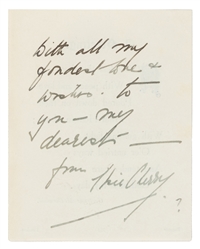 With all my
fondest love &
wishes. to
you — my
dearest —
from
?